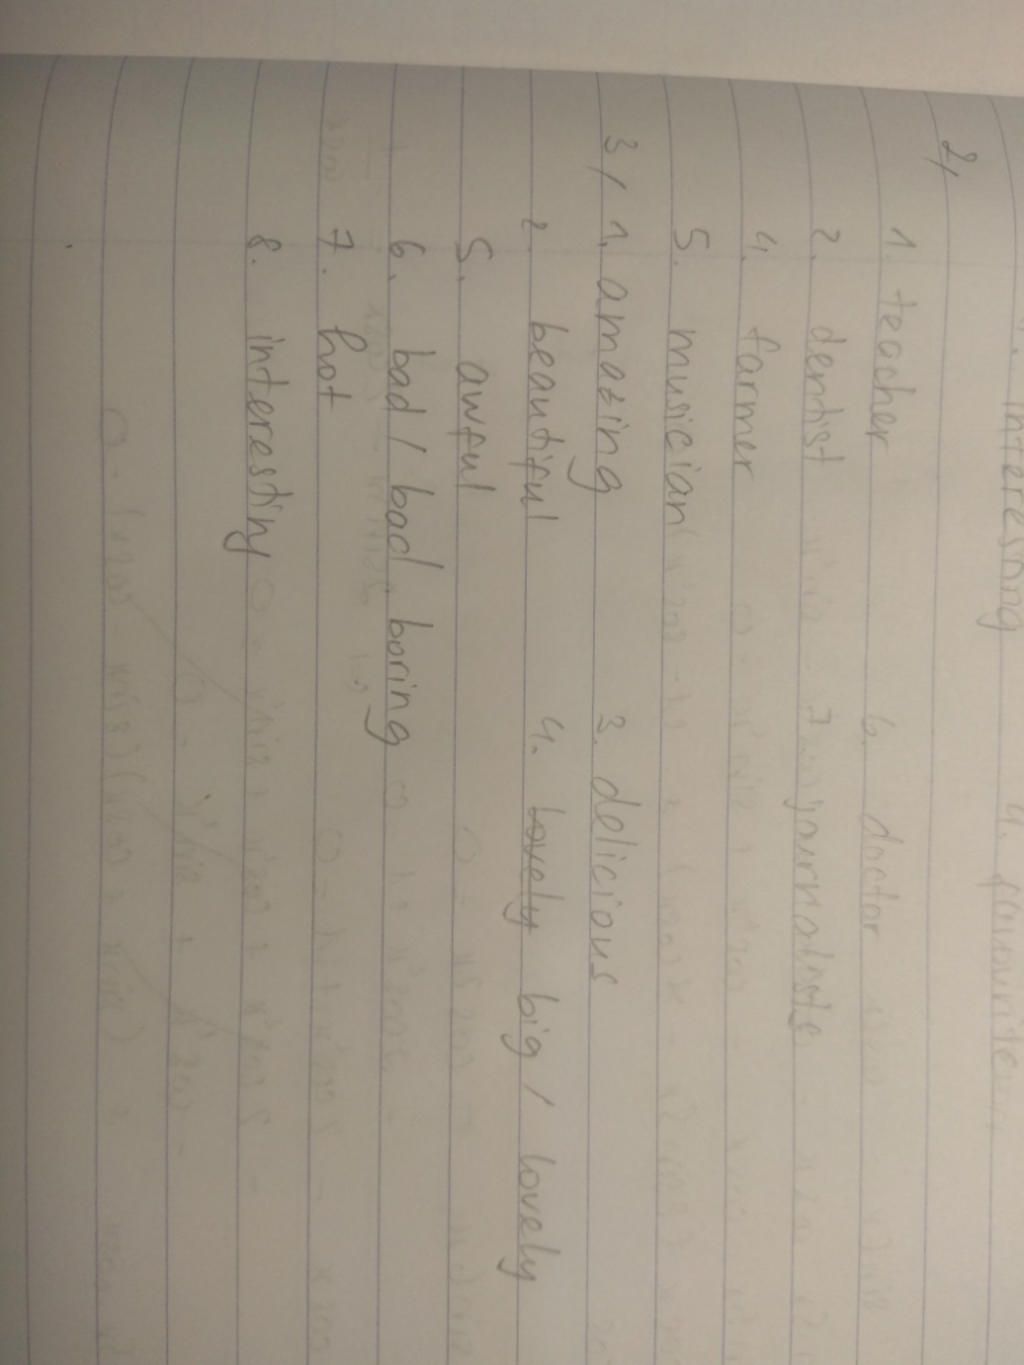 interesting 4.
2,
1. teacher 6. doctor
2. dentist 7
4. farmer
5. musician
3/ 1. amazing 3. delicious
2 beautiful 4. lovely big / lovely
5. awful
6. bad / bad, boring
7. hot
8. interesting